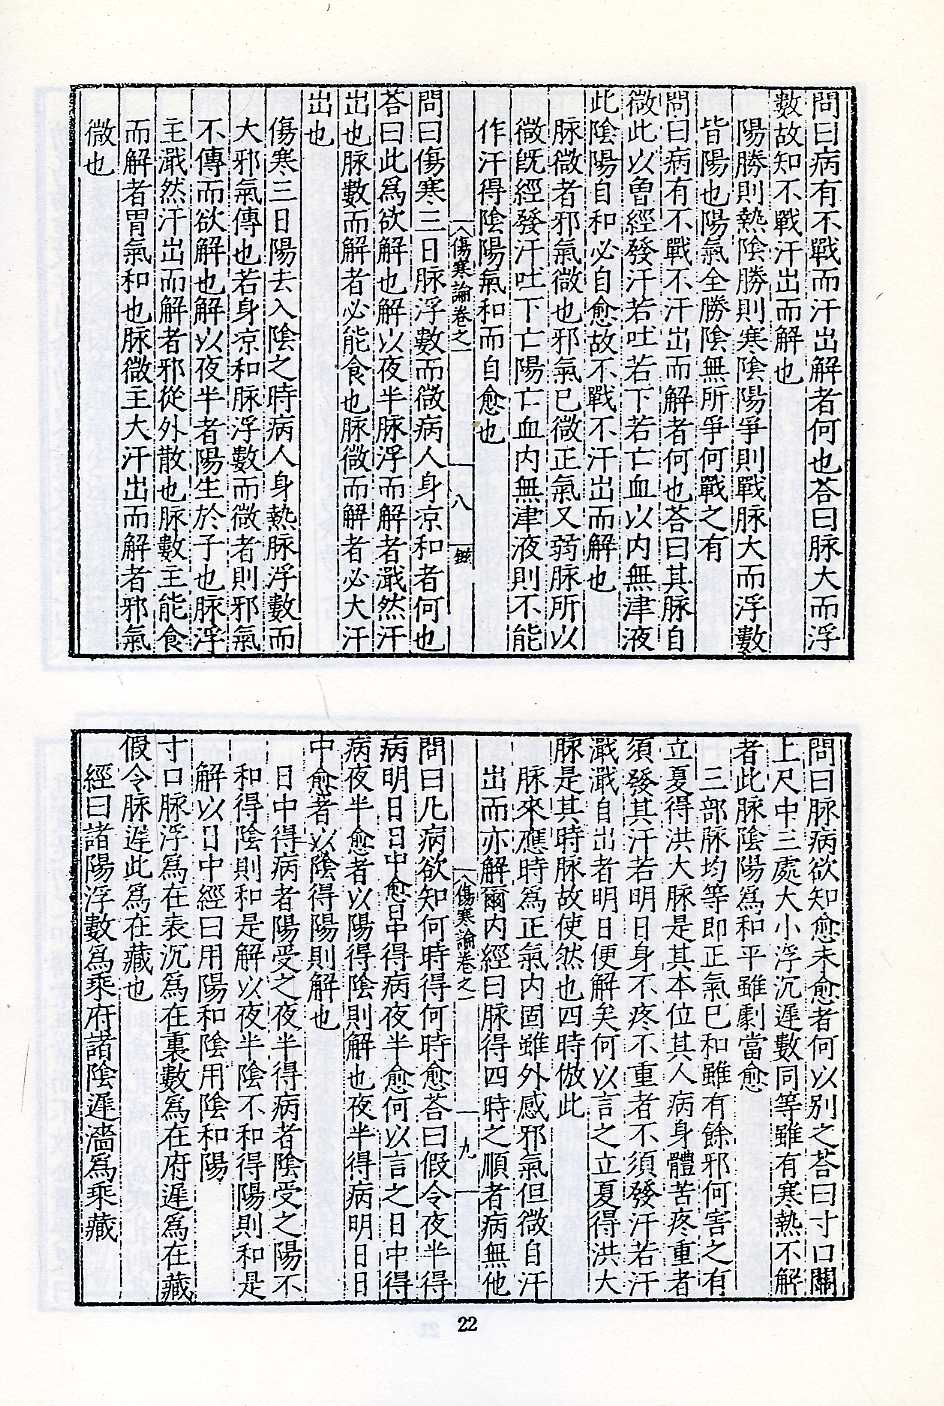 問曰病有不戰而汗出解者何也荅曰脉大而浮
數故知不戰汗出而解也
陽勝則熱陰勝則寒陰陽爭則戰脉大而浮數
皆陽也陽氣全勝陰無所爭何戰之有
問曰病有不戰不汗出而解者何也荅曰其脉自
微此以曾經發汗若吐若下若亡血以内無津液
此陰陽自和必自愈故不戰不汗出而解也
脉微者邪氣微也邪氣已微正氣又弱脉所以
微旣經發汗吐下亡陽亡血内無津液則不能
作汗得陰陽氣和而自愈也
傷寒論卷之一
八
問曰傷寒三日脉浮數而微病人身凉和者何也
荅曰此爲欲解也解以夜半脉浮而解者濈然汗
出也脉數而解者必能食也脉微而解者必大汗
出也
傷寒三日陽去入陰之時病人身熱脉浮數而
大邪氣傳也若身凉和脉浮數而微者則邪氣
不傳而欲解也解以夜半者陽生於子也脉浮
主濈然汗出而解者邪從外散也脉數主能食
而解者胃氣和也脉微主大汗出而解者邪氣
微也
問曰脉病欲知愈未愈者何以别之荅曰寸口關
上尺中三處大小浮沉遲數同等雖有寒熱不解
者此脉陰陽爲和平雖劇當愈
三部脉均等即正氣已和雖有餘邪何害之有
立夏得洪大脉是其本位其人病身體苦疼重者
須發其汗若明日身不疼不重者不須發汗若汗
濈濈自出者明日便解矣何以言之立夏得洪大
脉是其時脉故使然也四時倣此
脉來應時爲正氣内固雖外感邪氣但微自汗
出而亦解爾内經曰脉得四時之順者病無他
傷寒論卷之一
九
問曰凡病欲知何時得何時愈荅曰假令夜半得
病明日日中愈日中得病夜半愈何以言之日中得
病夜半愈者以陽得陰則解也夜半得病明日日
中愈者以陰得陽則解也
日中得病者陽受之夜半得病者陰受之陽不
和得陰則和是解以夜半陰不和得陽則和是
解以日中經曰用陽和陰用陰和陽
寸口脉浮爲在表沉爲在裏數爲在府遲爲在藏
假令脉遲此爲在藏也
經曰諸陽浮數爲乘府諸陰遲濇爲乘藏
22